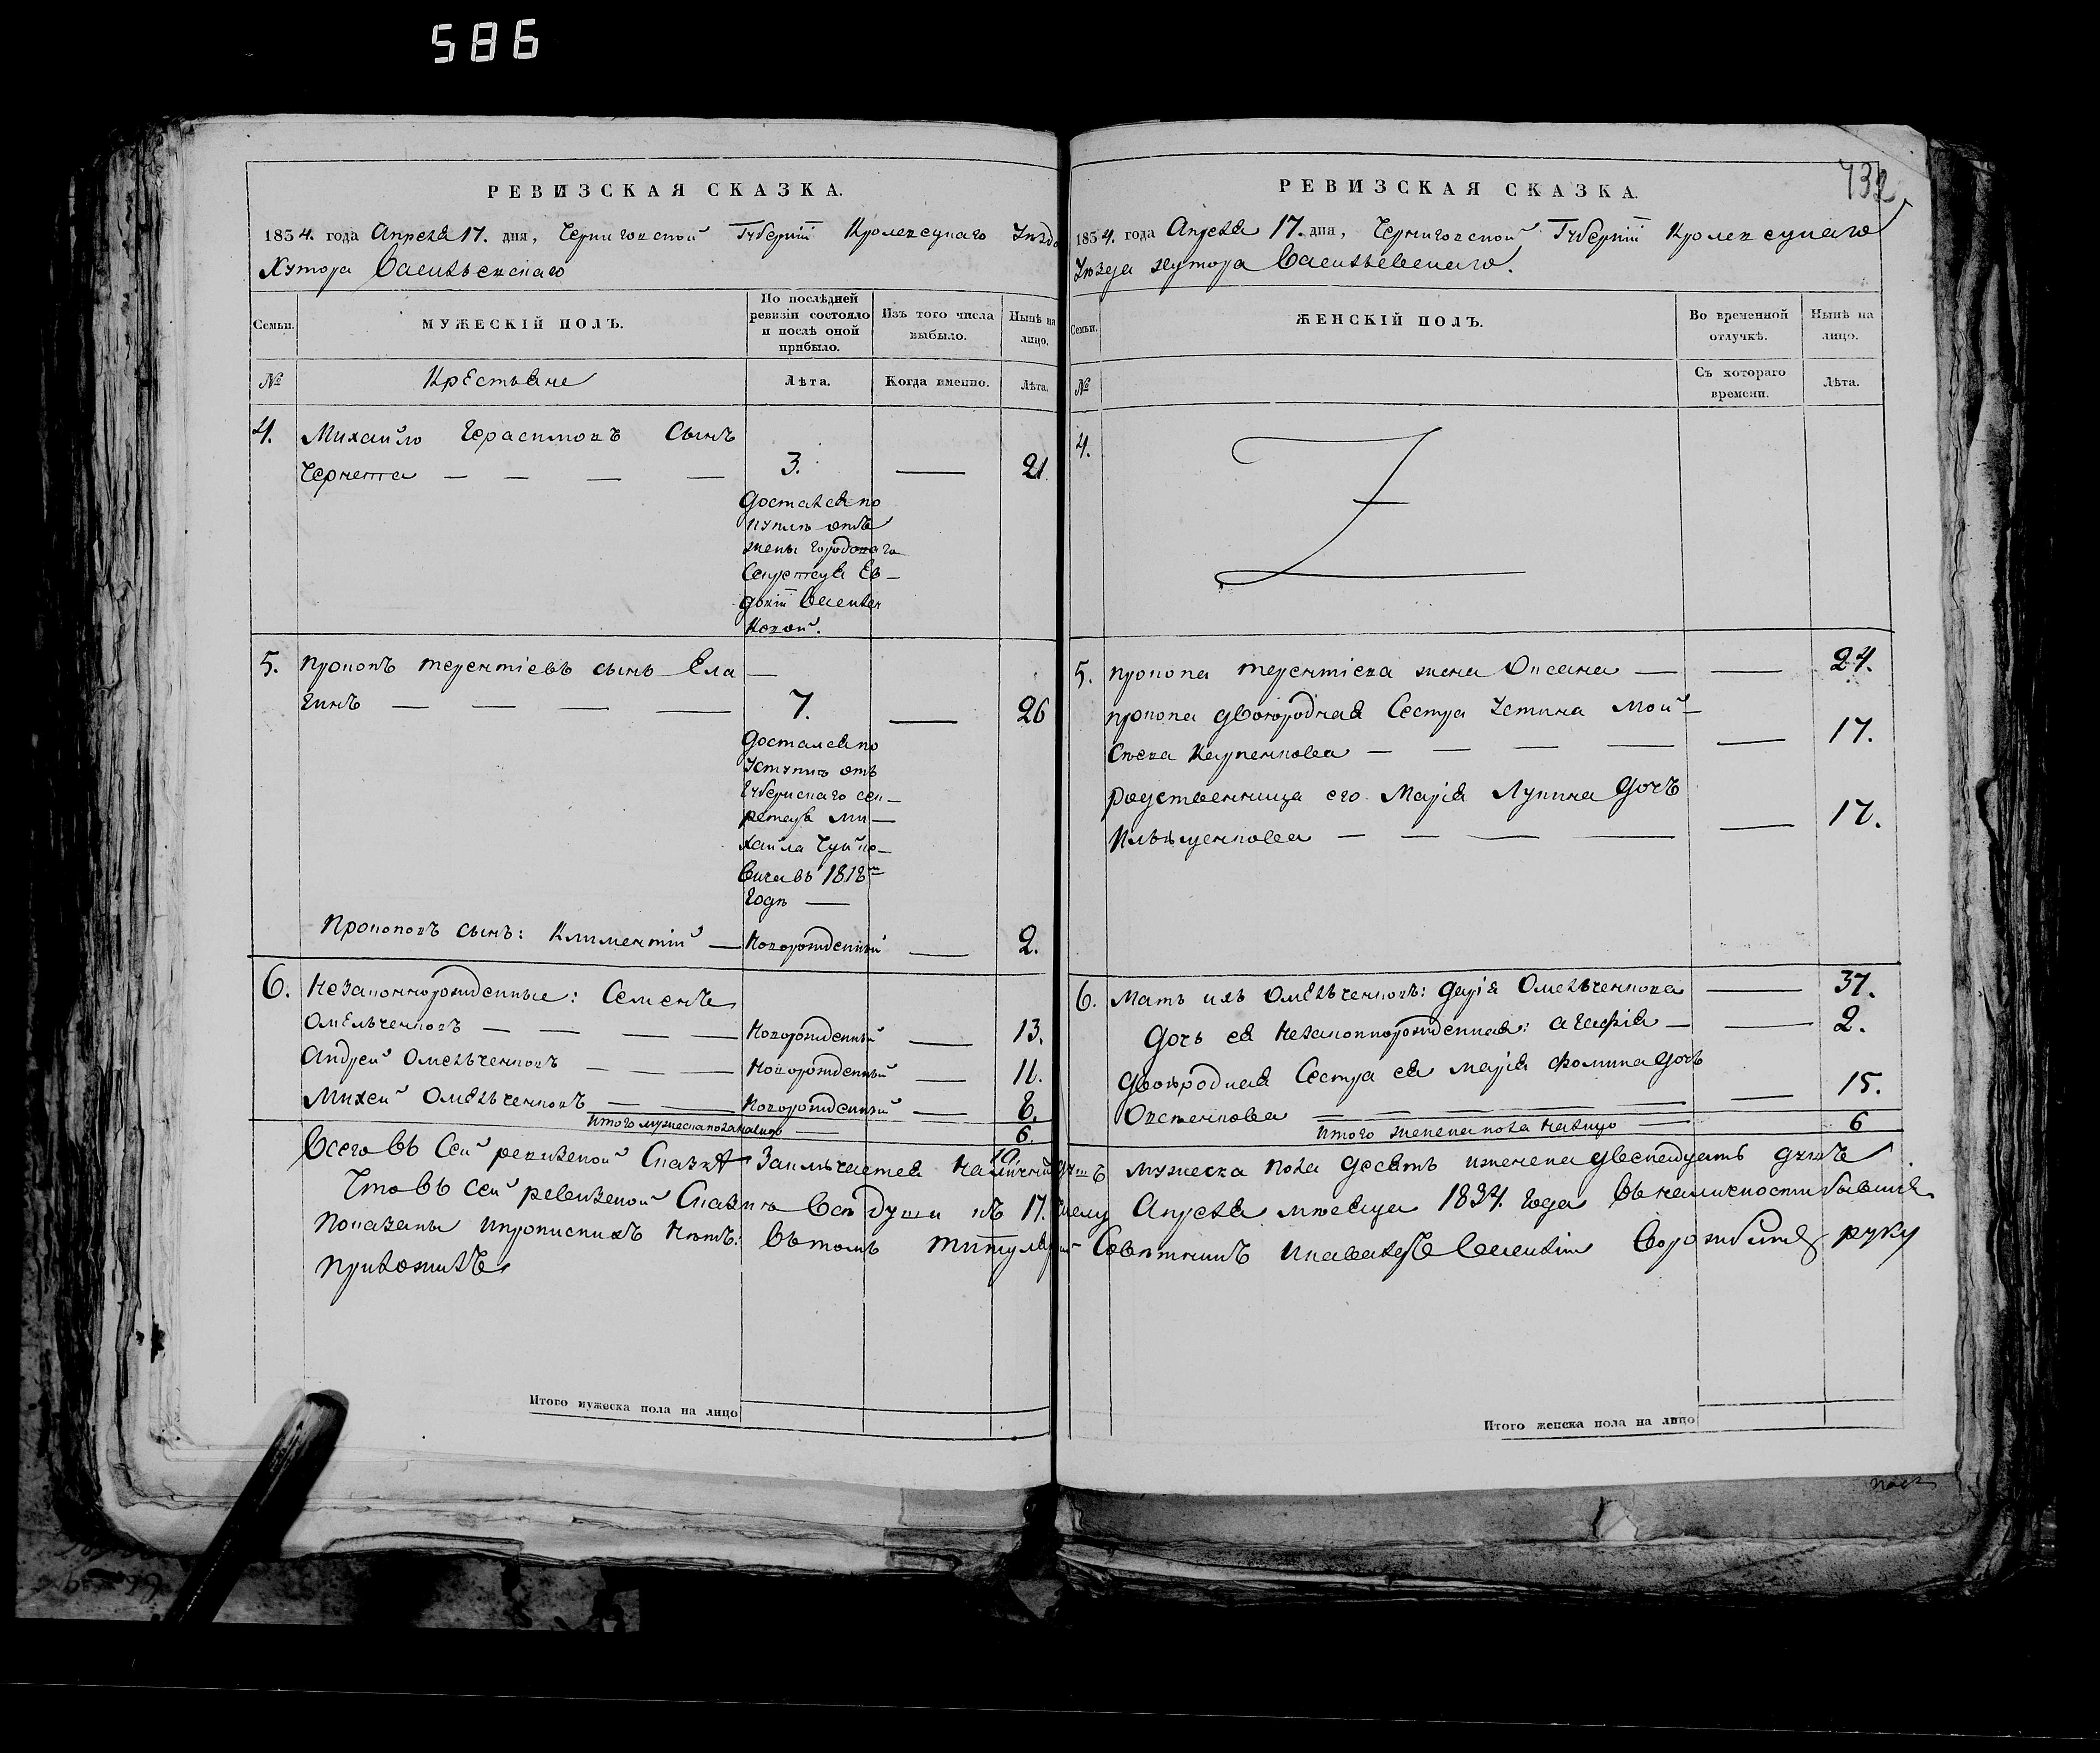 586
РЕВИЗСКАЯ СКАЗКА.
1834. года Апреля 17. дня, Черниговской Губерніи Кролевецкаго Уезда
Хутора Васильевскаго
Семьи.
МУЖЕСКІЙ ПОЛЪ.
По послѣдней ревизіи состояло и послѣ оной прибыло.
Изъ того числа выбыло.
Нынѣ на лицо.
№
Крестьяне
Лѣта.
Когда именно.
Лѣта.
4. Михайло Герасимовъ сынъ
Чернета — — — — 3. — 21
Достался по
купле отъ
жены городоваго
Секретаря Ев-
докіи Василев
ковой.
5. Прокопъ Терентіевъ сынъ Ела —
гинъ — — — — 7. — 26
Достался по
уступке отъ
Губернскаго сек-
ретаря Ми-
хайла Чуйко-
вича въ 1818м
годе —
Прокоповъ сынъ: Климентій — Новорожденный — 2.
6. Незаконнорожденные: Семенъ
Омельченковъ — — — — Новорожденный — 13.
Андрей Омельченковъ — — — Новорожденный — 11.
Михей Омельченковъ — — Новорожденный — 8.
Итого мужеска пола налицо — 6
432
РЕВИЗСКАЯ СКАЗКА.
1834. года Апреля 17. дня, Черниговской Губерніи Кролевецкаго
Уезда хутора Васильевскаго.
Семьи.
ЖЕНСКІЙ ПОЛЪ.
Во временной отлучкѣ.
Нынѣ на лицо.
№
Съ котораго времени.
Лѣта.
4.
5. Прокопа Терентіева жена Оксана — — 24.
Прокопа двоюродная Сестра Устина Мой-
сеева Карпенкова — — — — — 17.
Родственница его Марія Лукина дочь
Ильященкова — — — — — 17.
6. Мать ихъ Омельченковъ: Дарія Омельченкова — 37.
Дочь ея незаконнорожденная: Агафія — — 2.
Двоюродная Сестра ея Марія Фомина дочь
Овстенкова — — — — — 15.
Итого женска пола налицо — 6
Всего въ сей ревизской Сказке заключается наличныхъ душъ мужеска пола десять и женска двенадцать душъ.
10.
Что въ сей ревизской Сказке все души къ 17. числу Апреля месяца 1834. года въ наличности бывшіе
показаны и прописныхъ нетъ: въ томъ Титулярный Советникъ и кавалеръ Василій руку
приложилъ
Итого мужеска пола на лицо
Итого женска пола на лицо